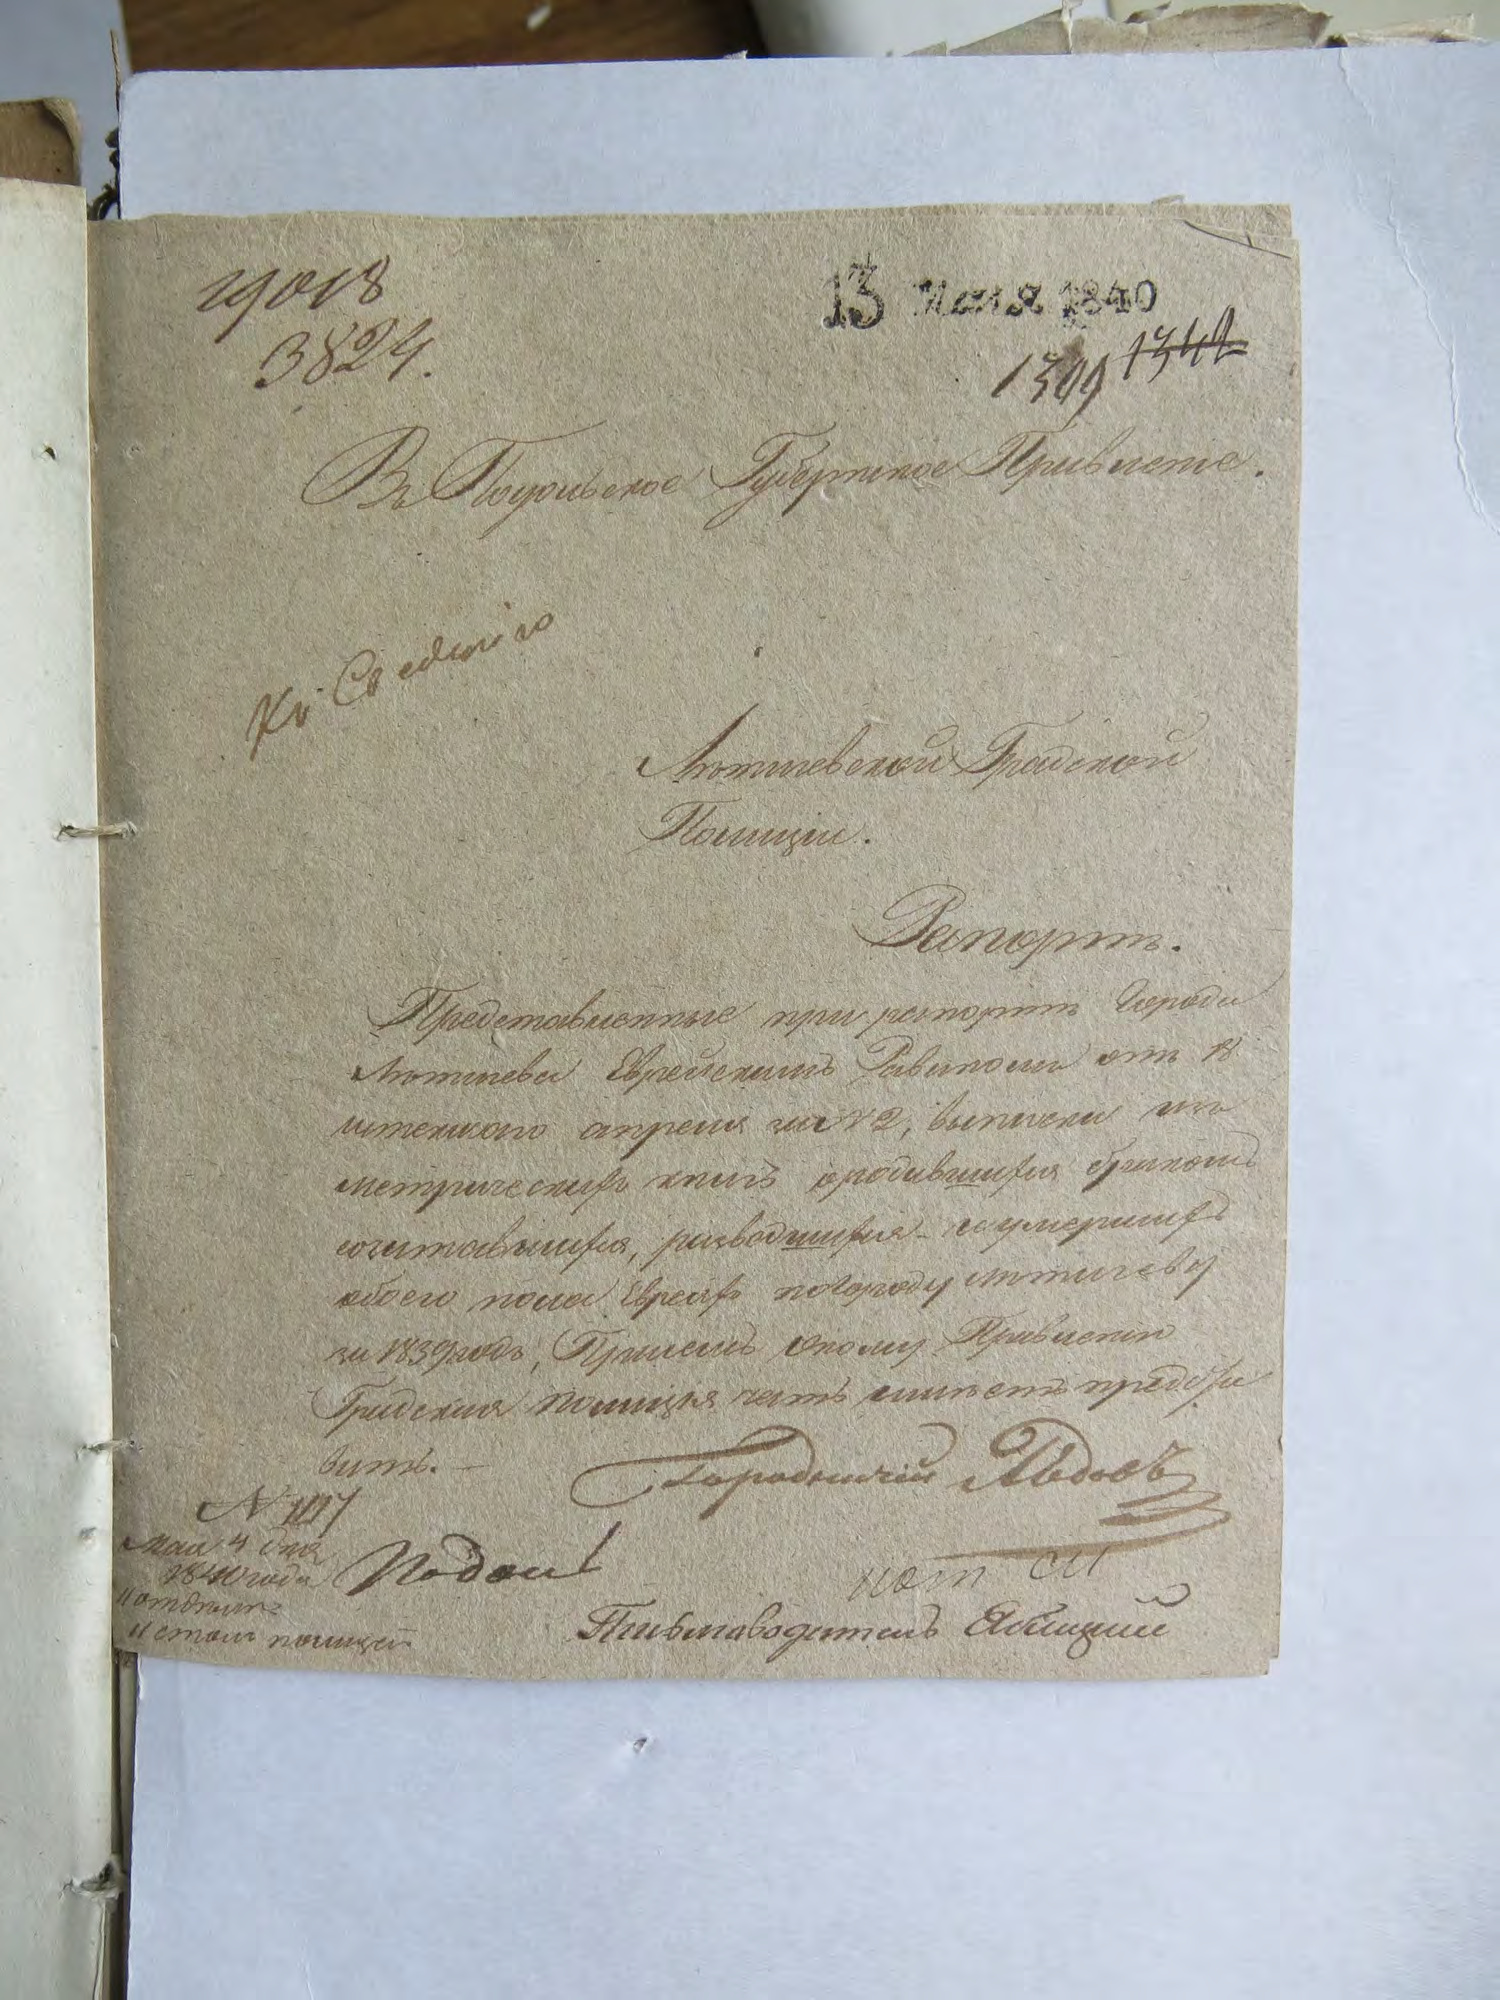 19018
3824.
13 Мая 1840
1309 1342
Въ Подольское Губернское Правленіе.
Къ Сведенію
Лютичевской Градской
Полиціи.
Рапортъ.
Представленные при рапортѣ города
Лютичева Еврейскимъ Равиномъ отъ 18
истекшаго апреля за № 2, выписки изъ
метрическихъ книгъ ородившихся бракомъ
сочитавшихся, разводшихся и умершихъ
обоего пола Евреяхъ погороду Лютичеву
за 1839 годъ, Присемъ оному Правленію
Градская полиція честь имѣетъ предста
вить.
Городничій
N 1117
Мая 4 дня
1840 года
Письмоводитель